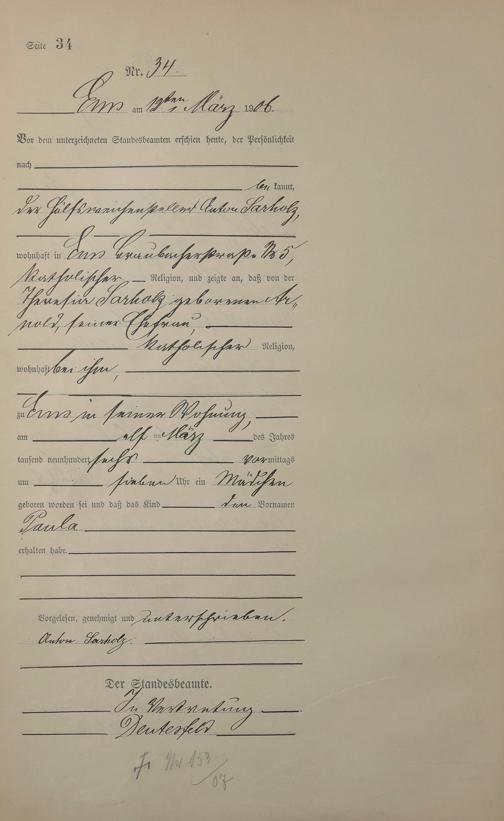 Seite 34
Nr. 34.
Ems am 12ten März 1906.
Vor dem unterzeichneten Standesbeamten erschien heute, der Persönlichkeit
nach
be kannt,
der Hülfsweichensteller Anton Sarholz,
wohnhaft in Ems Braubacherstraße No 5,
katholischer Religion, und zeigte an, daß von der
Theresia Sarholz geborenen Ar-
nold, seiner Ehefrau,
katholischer Religion,
wohnhaft bei ihm,
zu Ems in seiner Wohnung,
am elf ten März des Jahres
tausend neunhundert sechs vormittags
um sieben Uhr ein Mädchen
geboren worden sei und daß das Kind den Vornamen
Paula
erhalten habe.
Vorgelesen, genehmigt und unterschrieben.
Anton Sarholz.
Der Standesbeamte.
In Vertretung
Deutesfeld
Nr 153
/07